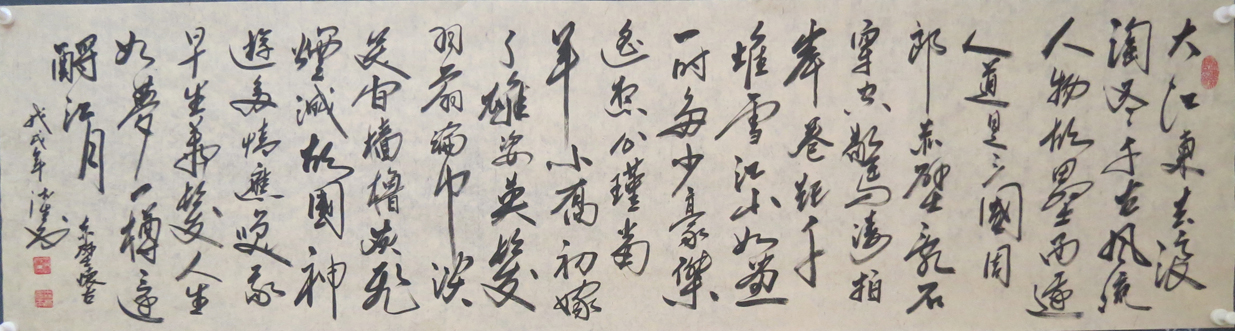 大江東去浪
淘尽千古風流
人物故壘西邊
人道是三國周
郎赤壁亂石
穿空驚濤拍
岸卷起千
堆雪江山如畫
一时多少豪傑
遥想公瑾當
年小喬初嫁
了雄姿英發
羽扇綸巾談
笑间檣櫓灰飛
煙滅故國神
遊多情應笑我
早生華髮人生
如夢一樽還
酹江月
赤壁懷古
戊戌年